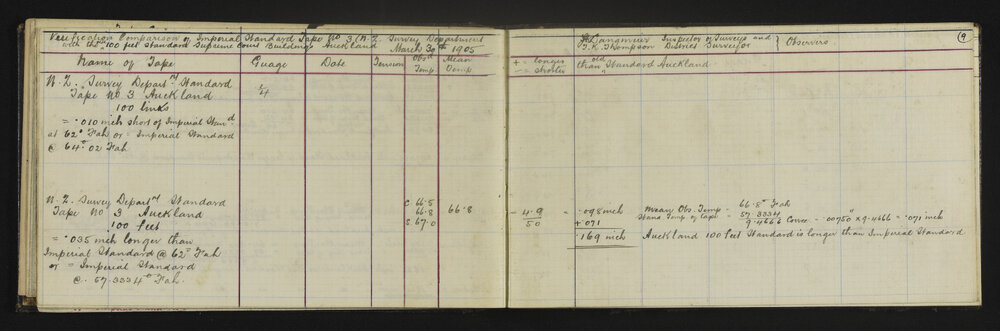 Verification Comparison of Imperial Standard Tape No 3 (N.Z. Survey Department
with the 100 feet Standard Supreme Court Buildings Auckland March 30th 1905
Langmuir Inspector of Surveys and
T.K. Thompson District Surveyor } Observers
9
Name of Tape Guage Date Tension Obsd Temp. Mean Temp.
+ = longer
- = shorter than old Standard Auckland
N.Z. Survey Departmt Standard 1/4
Tape No 3 Auckland
100 links
= .010 inch short of Imperial Stand
at 62° Fah or = Imperial Standard
@ 64°.02 Fah
N.Z. Survey Departmt Standard C 66.5
Tape No 3 Auckland 66.8 66.8
100 feet 67.0
= .035 inch longer than
Imperial Standard @ 62° Fah
or = Imperial Standard
@ 57.3334° Fah.
- 4.9/50 = .098 inch Mean Obs. Temp = 66.8° Fah
+ .071 Stand Temp of tape = 57.3334
9.4666 Correc = .00750 x 9.4666 = .071 inch
.169 inch Auckland 100 feet Standard is longer than Imperial Standard